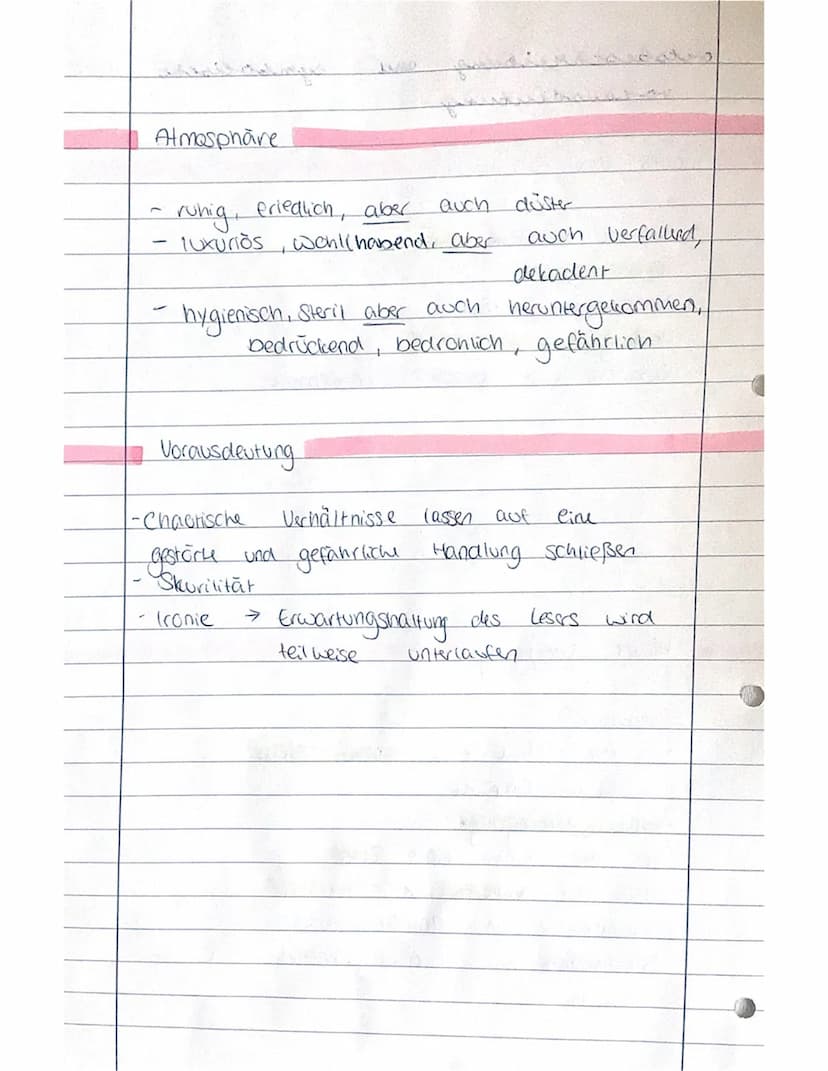 Atmosphäre
- ruhig, friedlich, aber auch düster
- luxuriös, wohl(habend, aber auch verfallend,
dekadent
- hygienisch, steril aber auch heruntergekommen,
bedrückend, bedrohlich, gefährlich
Vorausdeutung
-Chaotische Verhältnisse lassen auf eine
gestörte und gefährliche Handlung schließen
- Skurilität
- Ironie → Erwartungshaltung des Lesers wird
teilweise unterlaufen